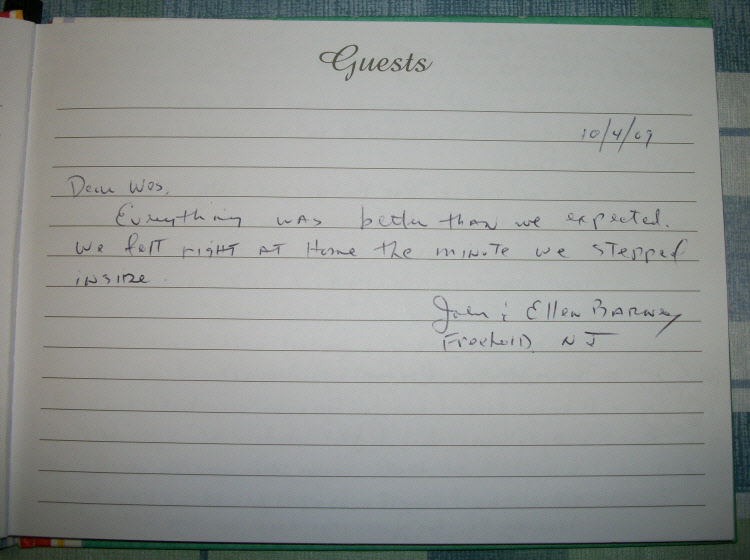 Guests
10/4/09
Dear Wes,
Everything was better than we expected.
We felt right at Home the minute we stepped
inside.
John & Ellen Barney
Freehold, NJ